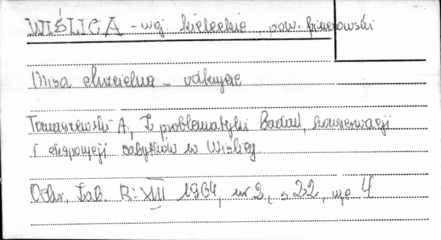 WIŚLICA - woj kieleckie, pow. pinczowski
Misa chrzcielna -
Tomaszewski A, Z problematyki Badań, konserwacji
i ekspozycji zabytków w Wiślicy
Ochr. Zab. R: XVII 1964, nr 2, s 22, 4